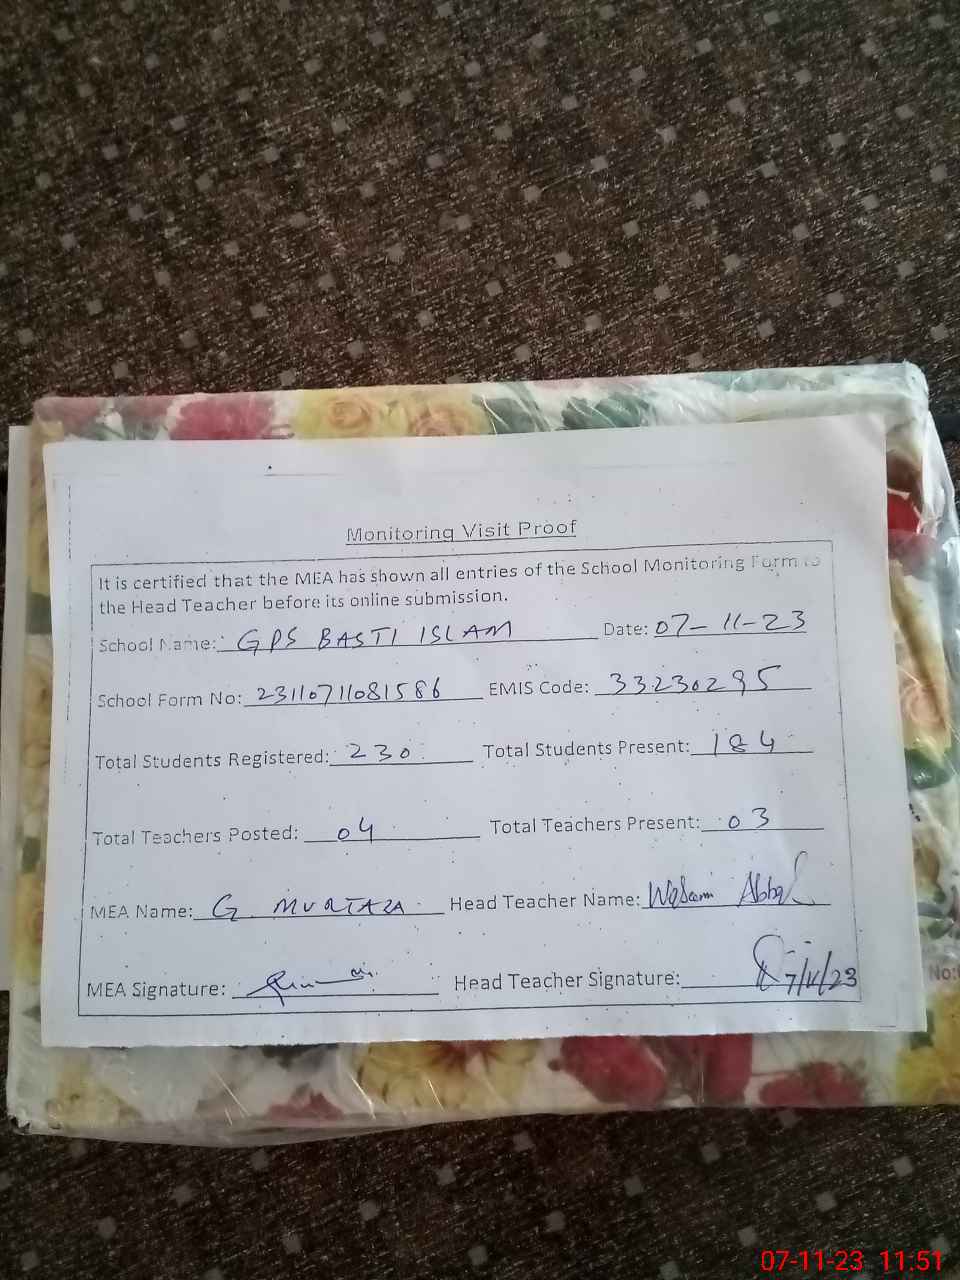 Monitoring Visit Proof
It is certified that the MEA has shown all entries of the School Monitoring Form to
the Head Teacher before its online submission.
School Name: GPS BASTI ISLAM Date: 07-11-23
School Form No: 23110711081586 EMIS Code: 33230295
Total Students Registered: 230 Total Students Present: 184
Total Teachers Posted: 04 Total Teachers Present: 03
MEA Name: G. MURTAZA Head Teacher Name: Waseem Abbas
MEA Signature: Head Teacher Signature: 7/11/23
No:
07-11-23 11:51